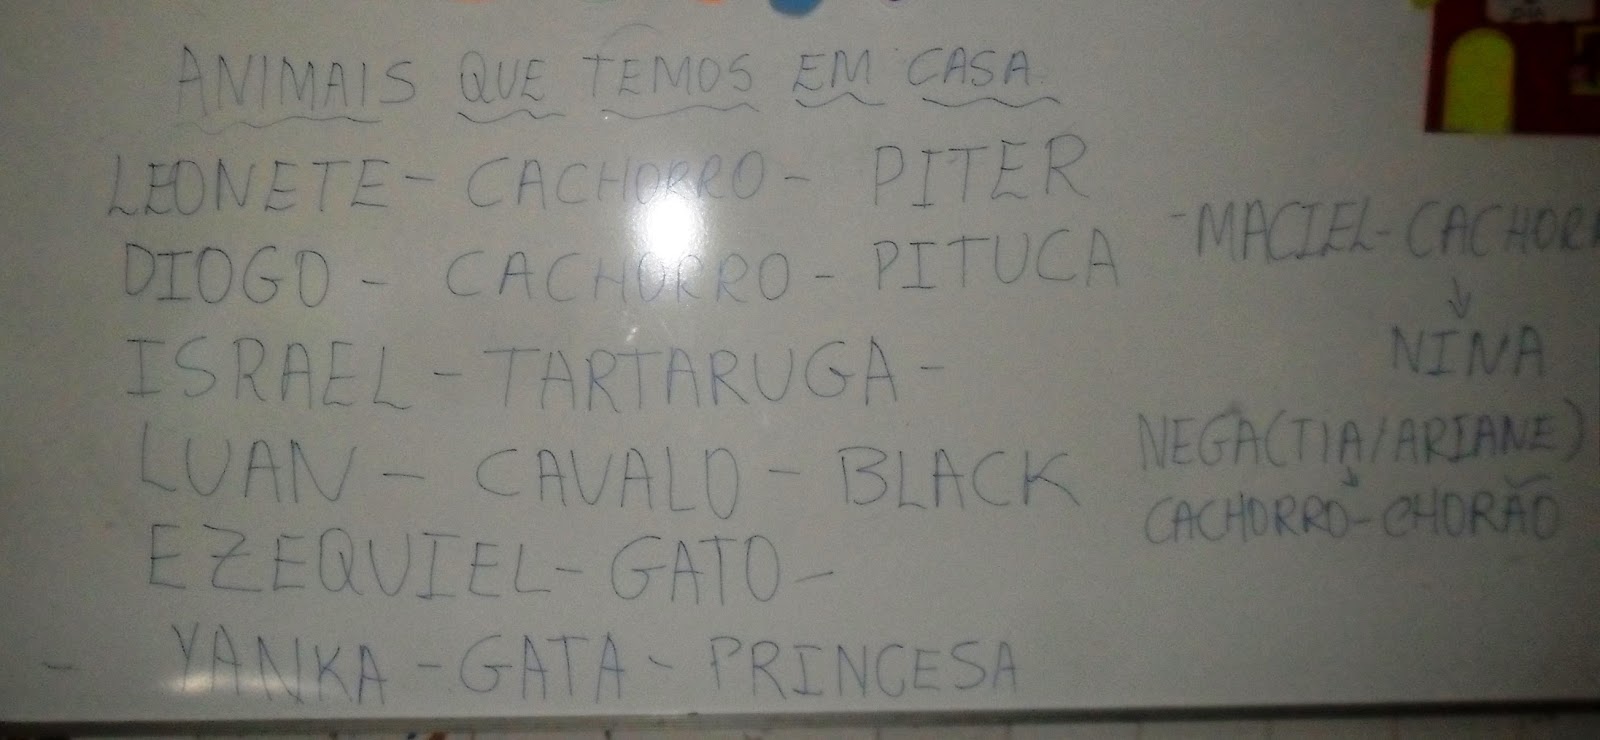 ANIMAIS QUE TEMOS EM CASA
LEONETE - CACHORRO - PITER
DIOGO - CACHORRO - PITUCA
ISRAEL - TARTARUGA -
LUAN - CAVALO - BLACK
EZEQUIEL - GATO -
- YANKA - GATA - PRINCESA
- MACIEL - CACHOR
↓
NINA
NEGA (TIA/ARIANE)
CACHORRO - CHORÃO